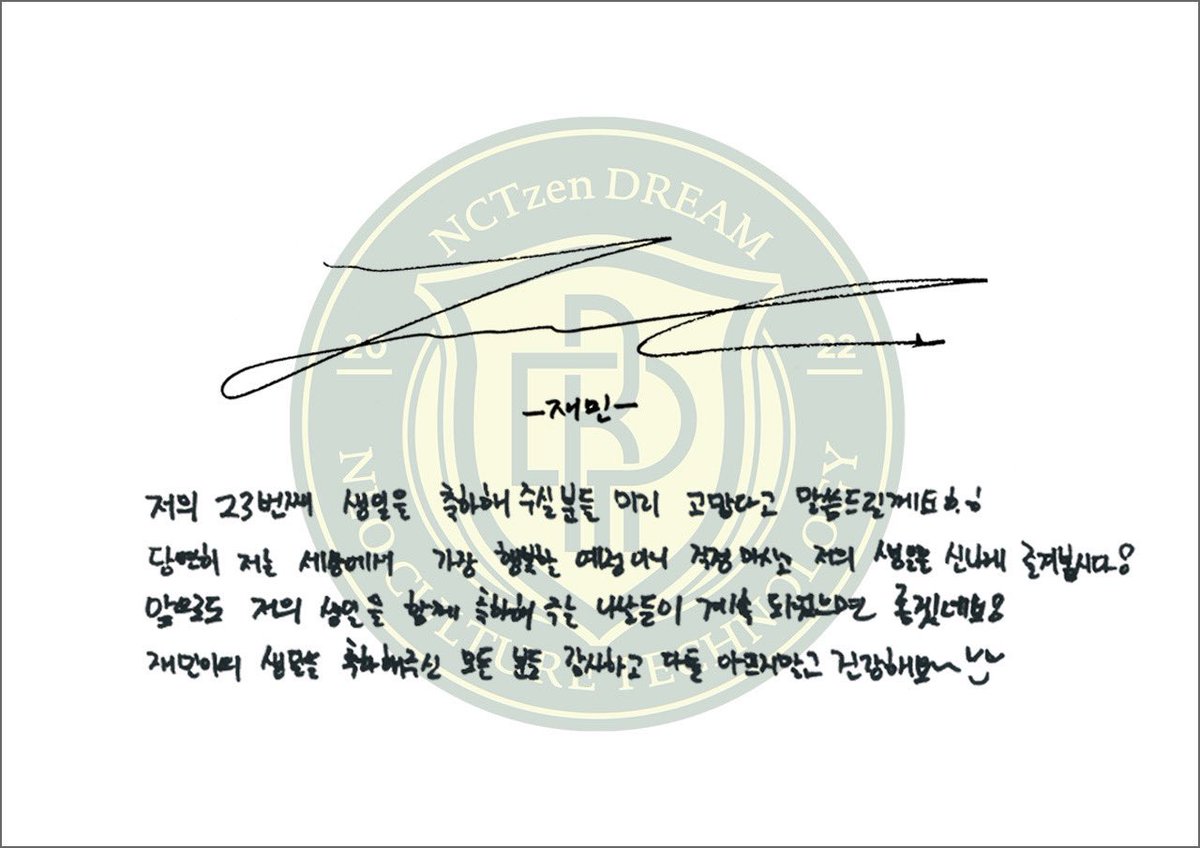 NCTzen DREAM
20 22
-재민-
저의 23번째 생일을 축하해 주실분들 미리 고맙다고 말씀드릴게요!
당연히 저는 세상에서 가장 행복할 예정이니 걱정 마시고 저의 생일을 신나게 즐겨봅시다!
앞으로도 저의 생일을 함께 축하해 주는 나날들이 계속 되었으면 좋겠네요!
재민이의 생일을 축하해주신 모든 분들 감사하고 다들 아프지않고 건강해요~
NEO CULTURE TECHNOLOGY